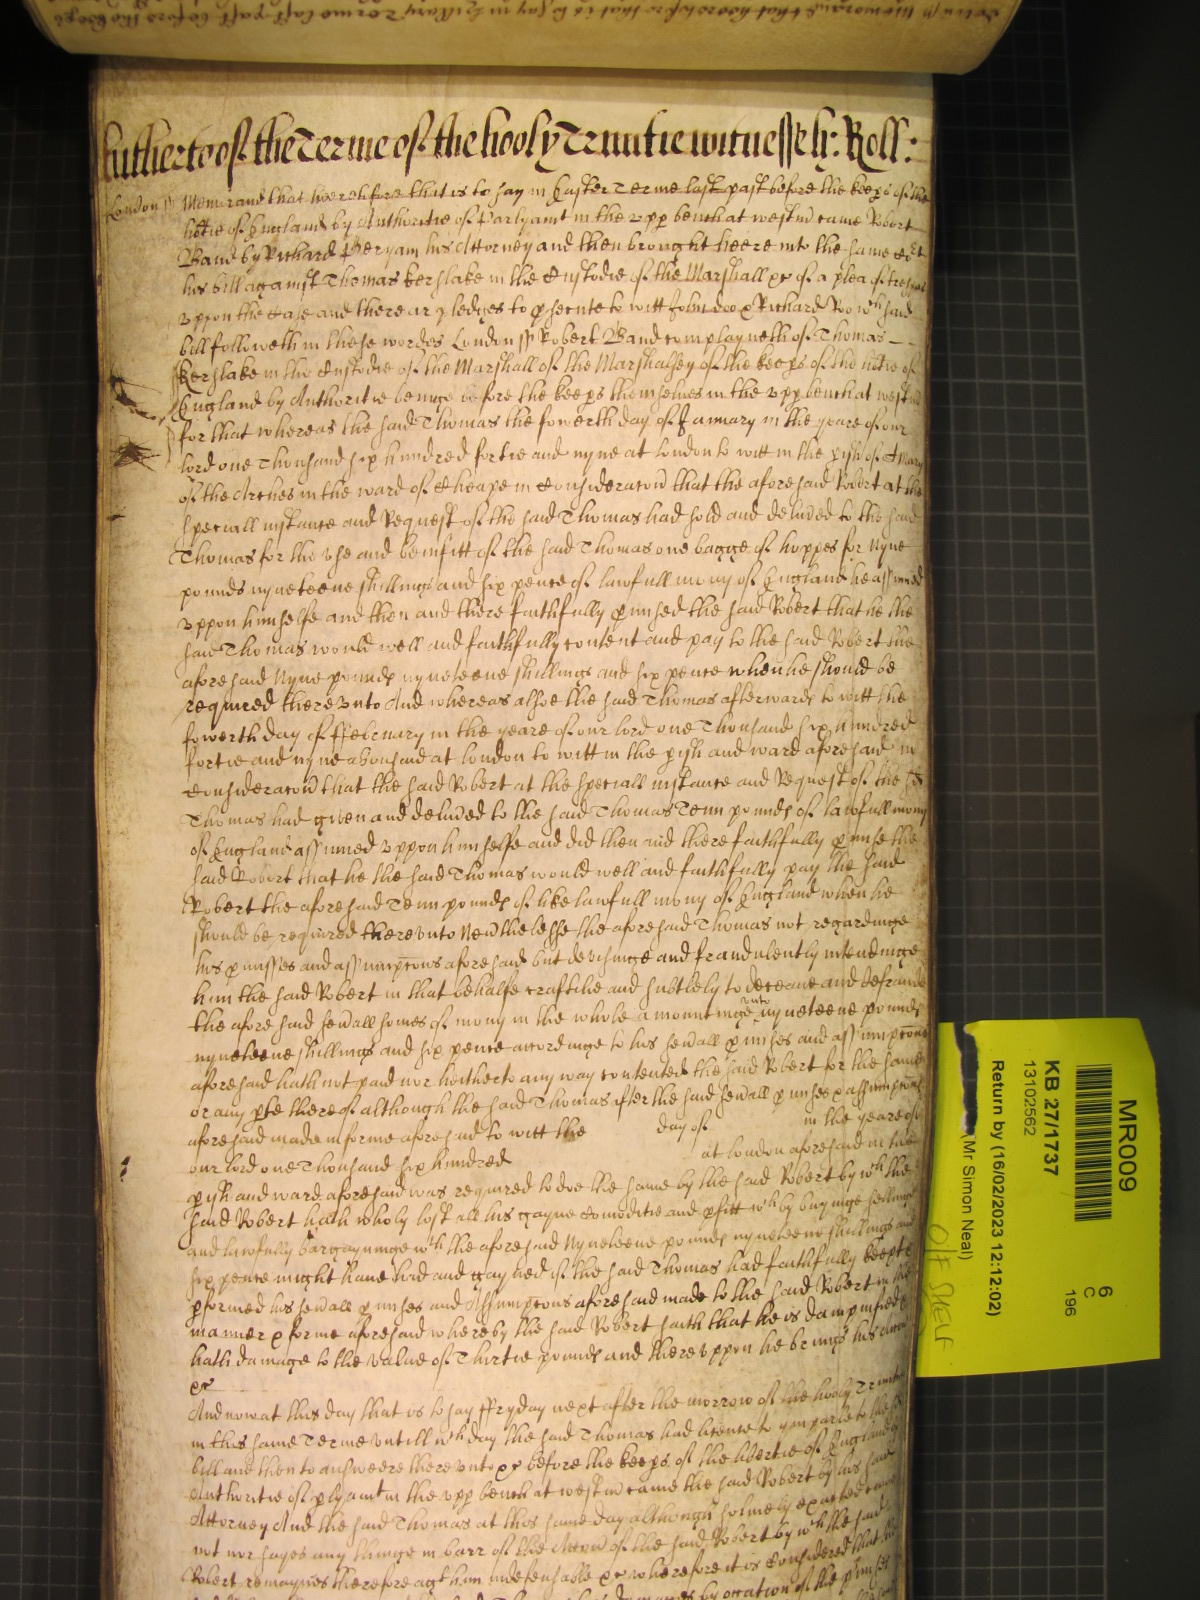 hitherto of the Terme of the hooly Trinitie witnesseth: Roll:
London ss Memorand that heeretofore that is to say in Easter Terme last past before the keeps of the
libtie of England by Authoritie of Parlyamt in the upp bench at westm came Robert
Band by Richard Peryam his Attorney and then brought heere into the same Court
his bill against Thomas kerslake in the Custodie of the Marshall &c of a plea of trespas
uppon the Case and there are pledges to psecute to witt John doo & Richard Roo wch said
bill followeth in these wordes London ss Robert Band complayneth of Thomas
kerslake in the Custodie of the Marshall of the Marshalsey of the keeps of the libtie of
England by Authoritie beinge before the keeps themselves in the upp bench at westm
for that whereas the said Thomas the fowerth day of January in the yeare of our
lord one Thousand six hundred fortie and nyne at London to witt in the pish of St Mary
of the Arches in the ward of Cheape in Consideracon that the aforesaid Robert at the
speciall instance and Request of the said Thomas had sold and delived to the said
Thomas for the use and benifitt of the said Thomas one bagge of hoppes for Nyne
pounds nyneteene shillings and six pence of lawfull mony of England he assumed
uppon himselfe and then and there faithfully pmised the said Robert that he the
said Thomas would well and faithfully content and pay to the said Robert the
aforesaid Nyne pounds nyneteene shillings and six pence when he should be
required thereunto And whereas alsoe the said Thomas afterwards to witt the
fowerth day of ffebruary in the yeare of our lord one Thousand six hundred
fortie and nyne abovesaid at London to witt in the pish and ward aforesaid in
Consideracon that the said Robert at the speciall instance and Request of the sd
Thomas had given and delived to the said Thomas Tenn pounds of lawfull mony
of England assumed uppon himselfe and did then and there faithfully pmise the
said Robert that he the said Thomas would well and faithfully pay the said
Robert the aforesaid Tenn pounds of like lawfull mony of England when he
should be required thereunto Nevthelesse the aforesaid Thomas not regardinge
his pmisses and assumptions aforesaid but devisinge and fraudulently intendinge
him the said Robert in that behalfe craftilie and subtlely to deceave and defraude
the aforesaid sevall somes of mony in the whole amountinge unto nyneteene pounds
nyneteene shillings and six pence accordinge to his sevall pmises and assumptions
aforesaid hath not paid nor heitherto any way contented the said Robert for the same
or any pte thereof although the said Thomas after the said sevall pmises & assumptions
aforesaid made in forme aforesaid to witt the day of in the yeare of
our lord one Thousand six hundred at London aforesaid in the
pish and ward aforesaid was required to doe the same by the said Robert by wch the
said Robert hath wholy lost all his gayne Comoditie and pfitt wch by buyinge sellinge
and lawfully bargayninge wth the aforesaid Nyneteene pounds nyneteene shillings and
six pence might have had and gayned if the said Thomas had faithfully keepte
pformed his sevall pmises and Assumptions aforesaid made to the said Robert in the
manner & forme aforesaid whereby the said Robert saith that he is dampnified &
hath damage to the value of Thirtie pounds and thereuppon he brings his suite
&c
And now at this day that is to say ffryday next after the morrow of the hooly Trinitie
in this same Terme untill wch day the said Thomas had licence to imparle to the sd
bill and then to answeere thereunto &c before the keeps of the libertie of England by
Authoritie of plyamt in the upp bench at westm came the said Robert by his said
Attorney And the said Thomas at this same day although solmely exacted came
not nor sayes any thinge in barr of the Accon of the said Robert by wch the said
Robert remaynes therefore agt him undefensable &c wherefore it is Considered that the
MR009
6
C
196
KB 27/1737
13102562
Return by (16/02/2023 12:12:02)
(Mr Simon Neal)
O/F SHELF